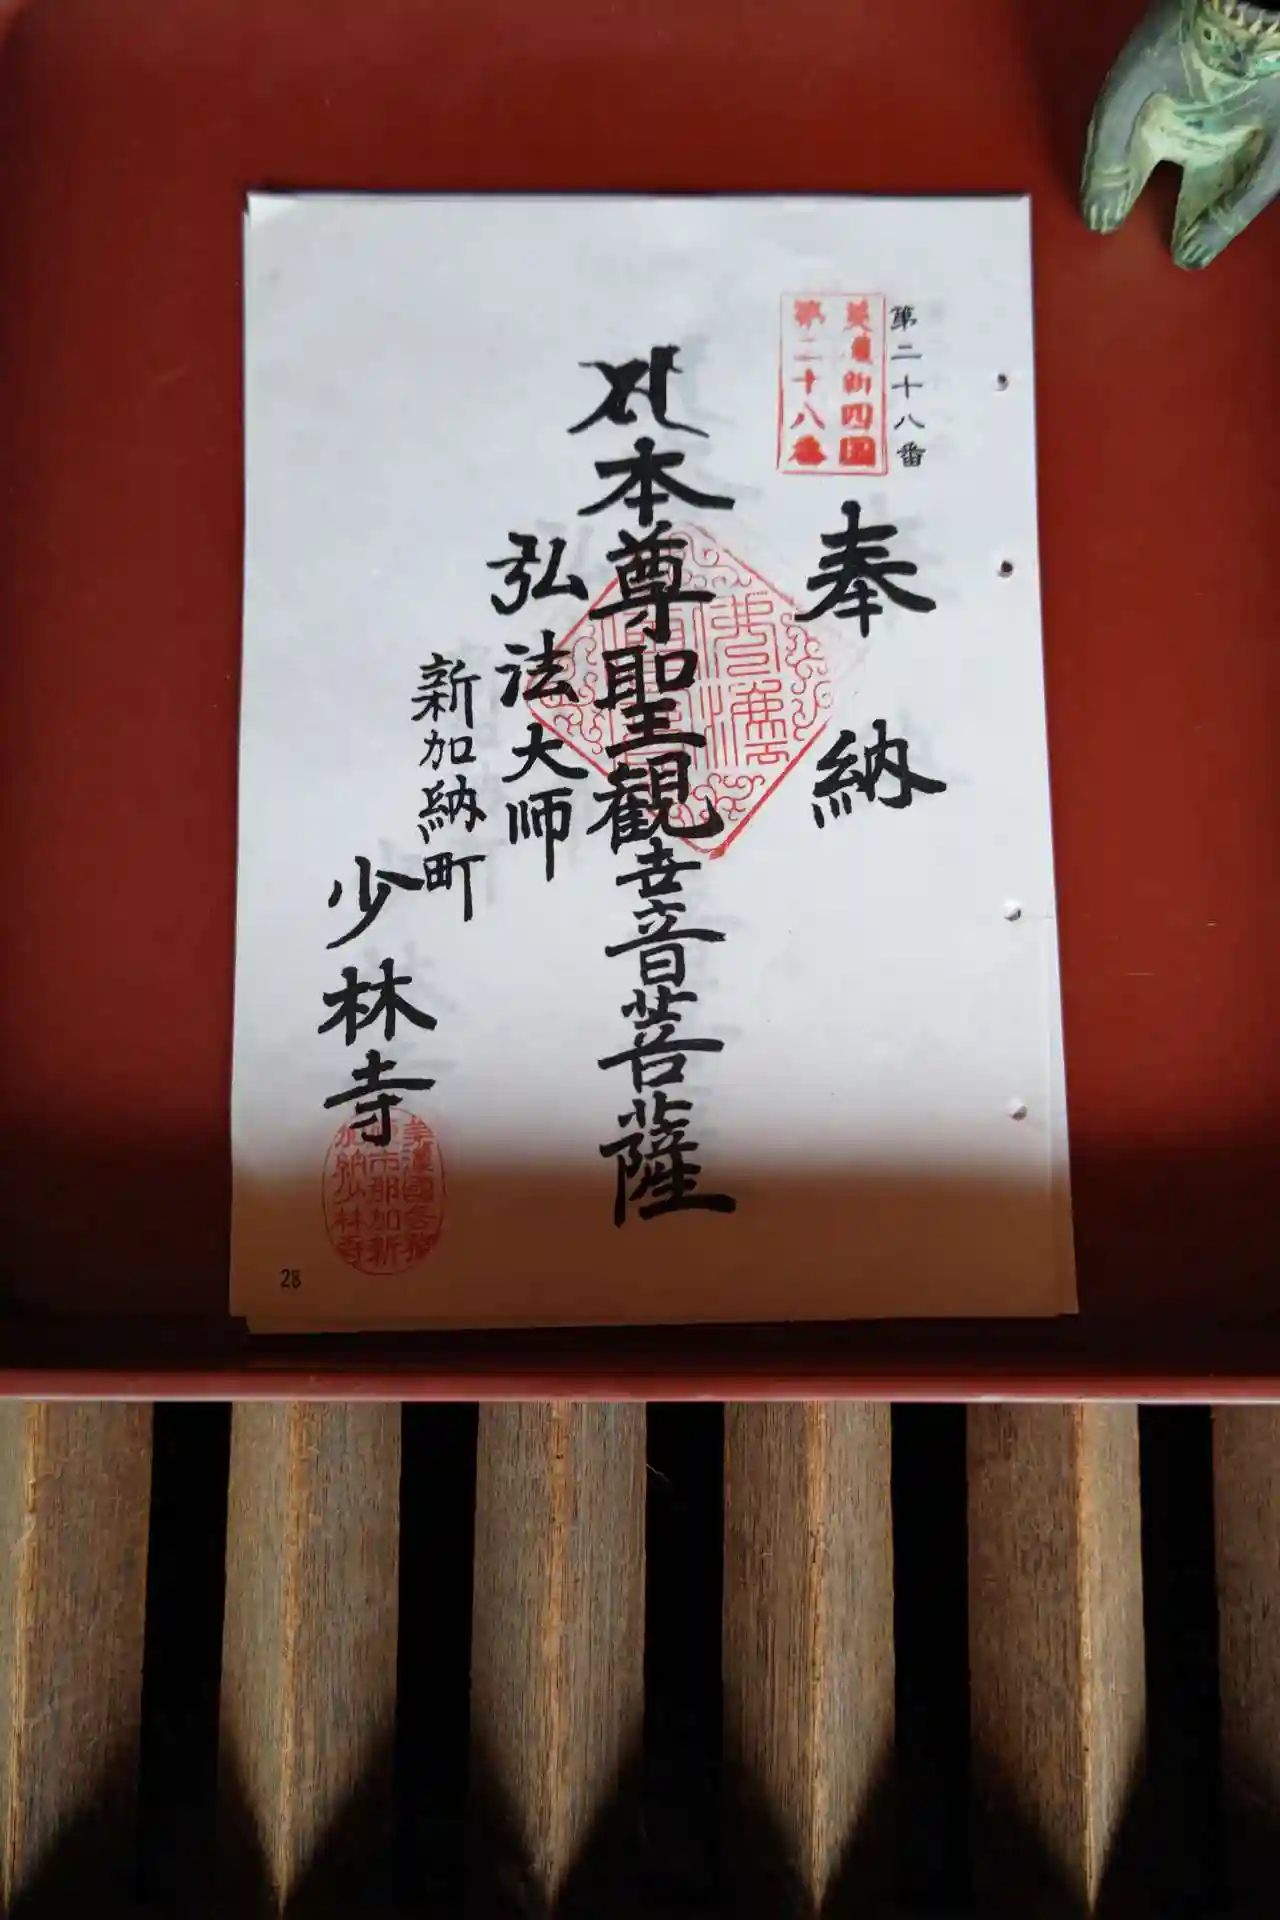 第二十八番
美濃新四国
第二十八番
奉納
本尊聖観世音菩薩
弘法大师
新加納町
少林寺
美濃國各務
市那加新
加納少林寺
28